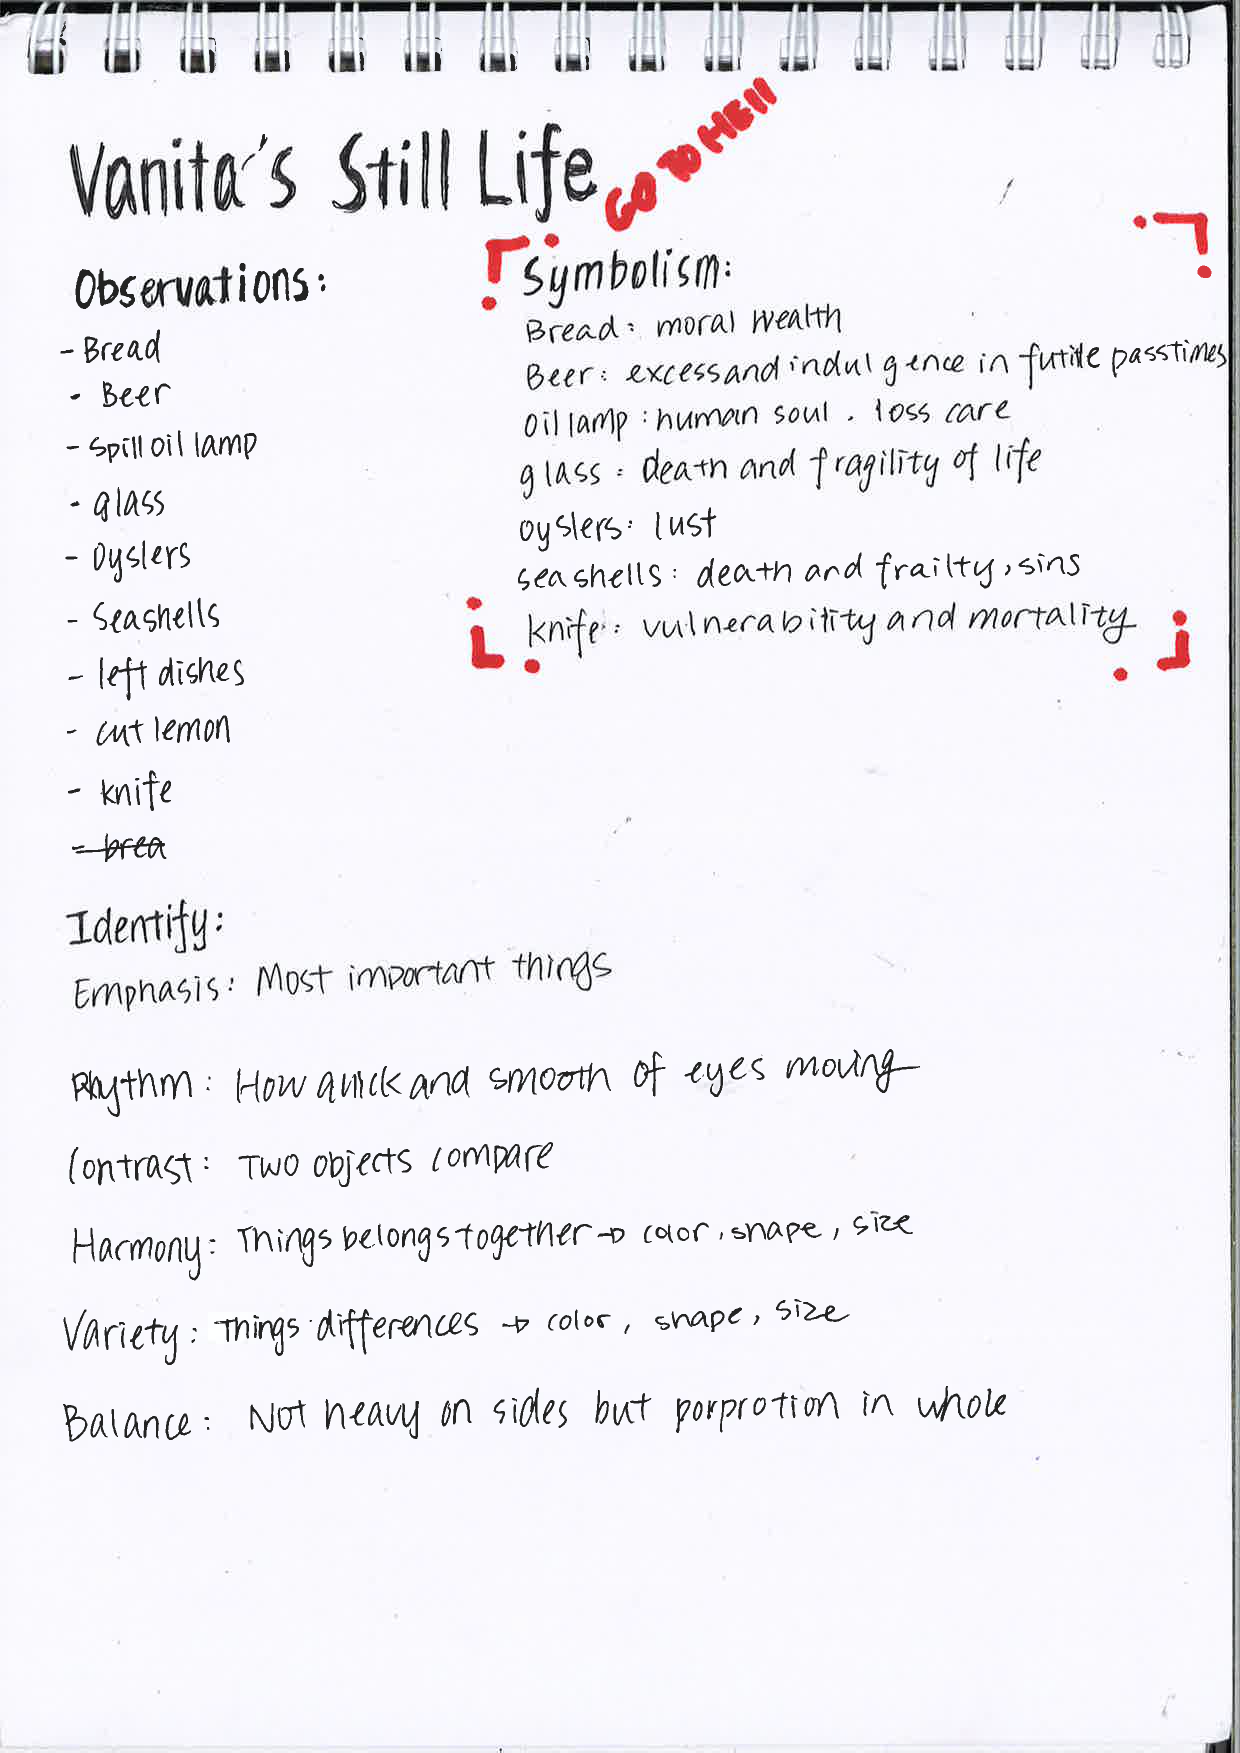 Vanita's Still Life
GO TO HEll
Observations:
- Bread
- Beer
- Spill oil lamp
- glass
- Oyslers
- Seashells
- left dishes
- cut lemon
- knife
- brea
Symbolism:
Bread: moral wealth
Beer: excess and indulgence in futile passtimes
oil lamp: human soul. loss care
glass: death and fragility of life
oyslers: lust
seashells: death and frailty, sins
knife: vulnerability and mortality
Identify:
Emphasis: Most important things
Rhythm: How quick and smooth of eyes moving
Contrast: Two objects compare
Harmony: Things belongs together → color, shape, size
Variety: Things differences → color, shape, size
Balance: Not heavy on sides but porprotion in whole